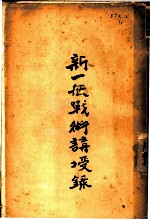 新一般戰術講授錄